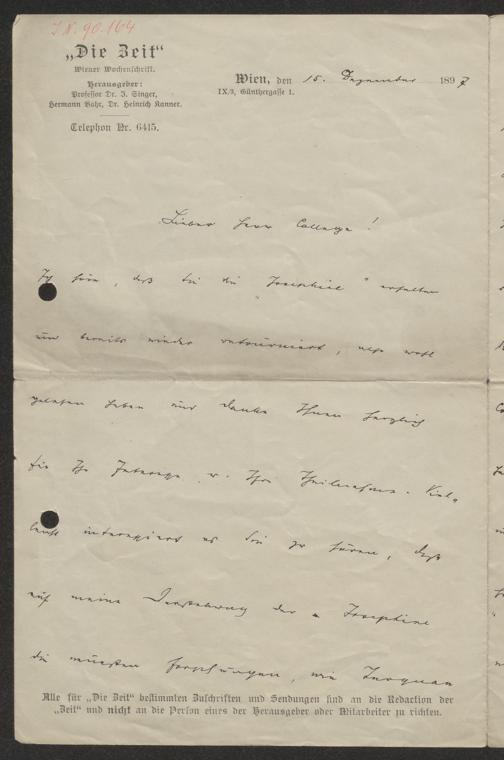 I.N. 90.164
„Die Zeit“
Wiener Wochenschrift.
Herausgeber:
Professor Dr. I. Singer,
Hermann Bahr, Dr. Heinrich Kanner.
Telephon Nr. 6415.
Wien, den 15. Dezember 1897
IX/3, Günthergasse 1.
Lieber Herr College!
Ich höre, daß Sie die „Josephine“ erhalten
und bereits wieder retourniert, also wohl
gelesen haben und danke Ihnen herzlich
für Ihr Interesse u. Ihre Theilnahme. Viel-
leicht interessiert es Sie zu hören, daß
auf meine Darstellung der „Josephine
die neuesten Forschungen, wie Turquan
Alle für „Die Zeit“ bestimmten Zuschriften und Sendungen sind an die Redaction der
„Zeit“ und nicht an die Person eines der Herausgeber oder Mitarbeiter zu richten.